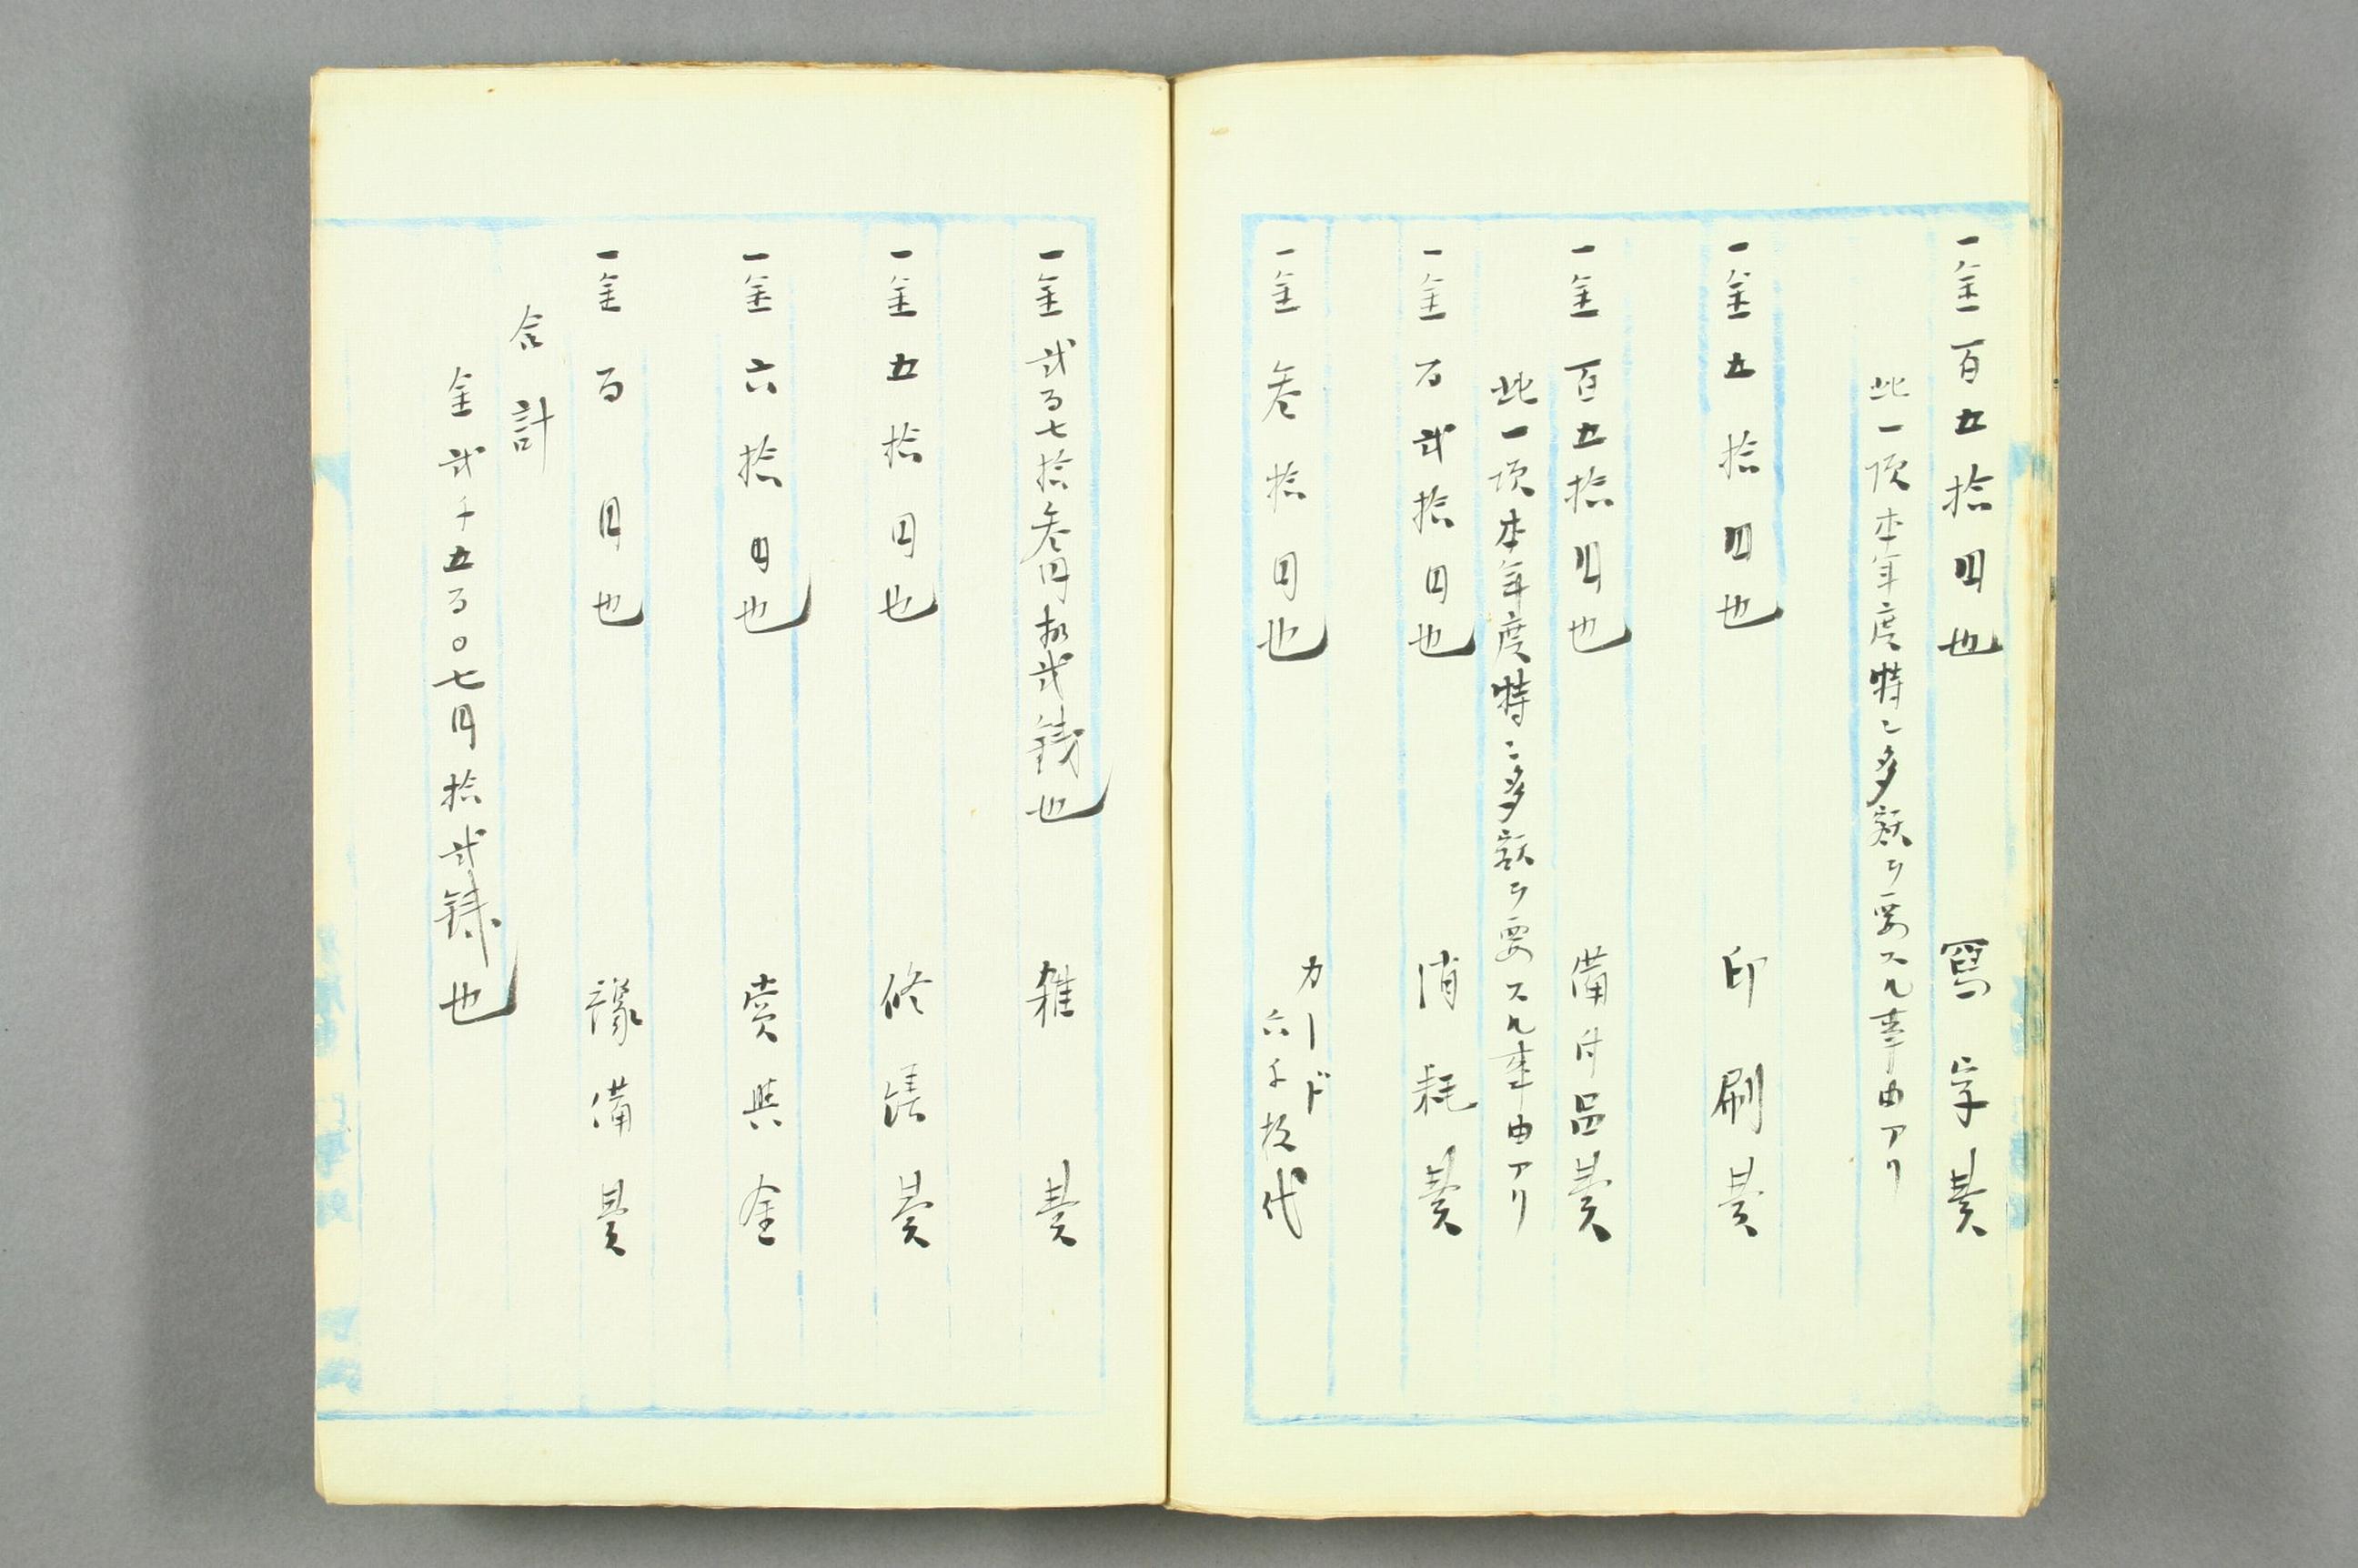 一金百五拾円也 寫字費
此一項本年度特ニ多額ヲ要スル事由アリ
一金五拾円也 印刷費
一金百五拾円也 備付品費
此一項本年度特ニ多額ヲ要スル事由アリ
一金百弐拾円也 消耗費
一金参拾円也 カード
六千枚代
一金弐百七拾参円拾弐錢也 雑費
一金五拾円也 修繕費
一金六拾円也 賞與金
一金百円也 豫備費
合計
金弐千五百〇七円拾弐錢也